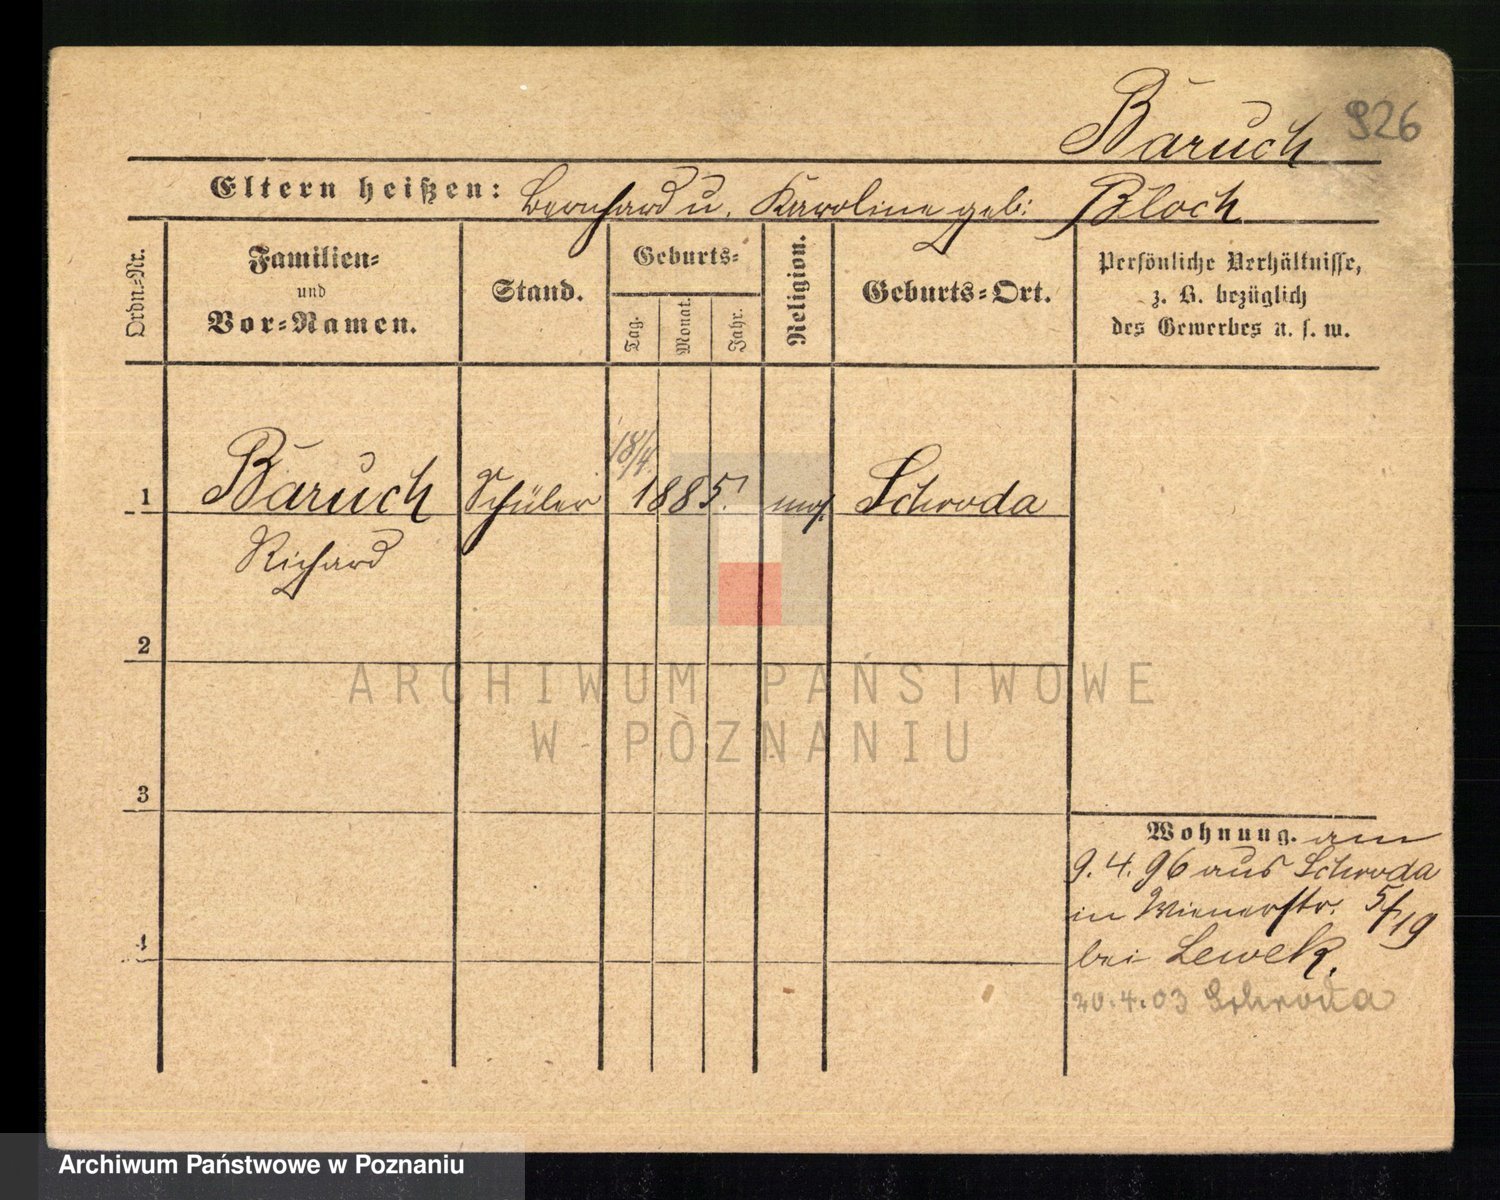 926
Baruch
Eltern heißen: Bernhard u. Karoline geb: Bloch
Ordn.-Nr.
Familien-
und
Vor-Namen.
Stand.
Geburts-
Tag.
Monat.
Jahr.
Religion.
Geburts-Ort.
Persönliche Verhältnisse,
z. B. bezüglich
des Gewerbes u. s. w.
18/4.
1 Baruch Schüler 1885. mos. Schroda
Richard
2
3
4
Wohnung. am
9. 4. 96 aus Schroda
in Wienerstr. 5/19
bei Lewek.
20.4.03 Schroda
ARCHIWUM PAŃSTWOWE
W POZNANIU
Archiwum Państwowe w Poznaniu